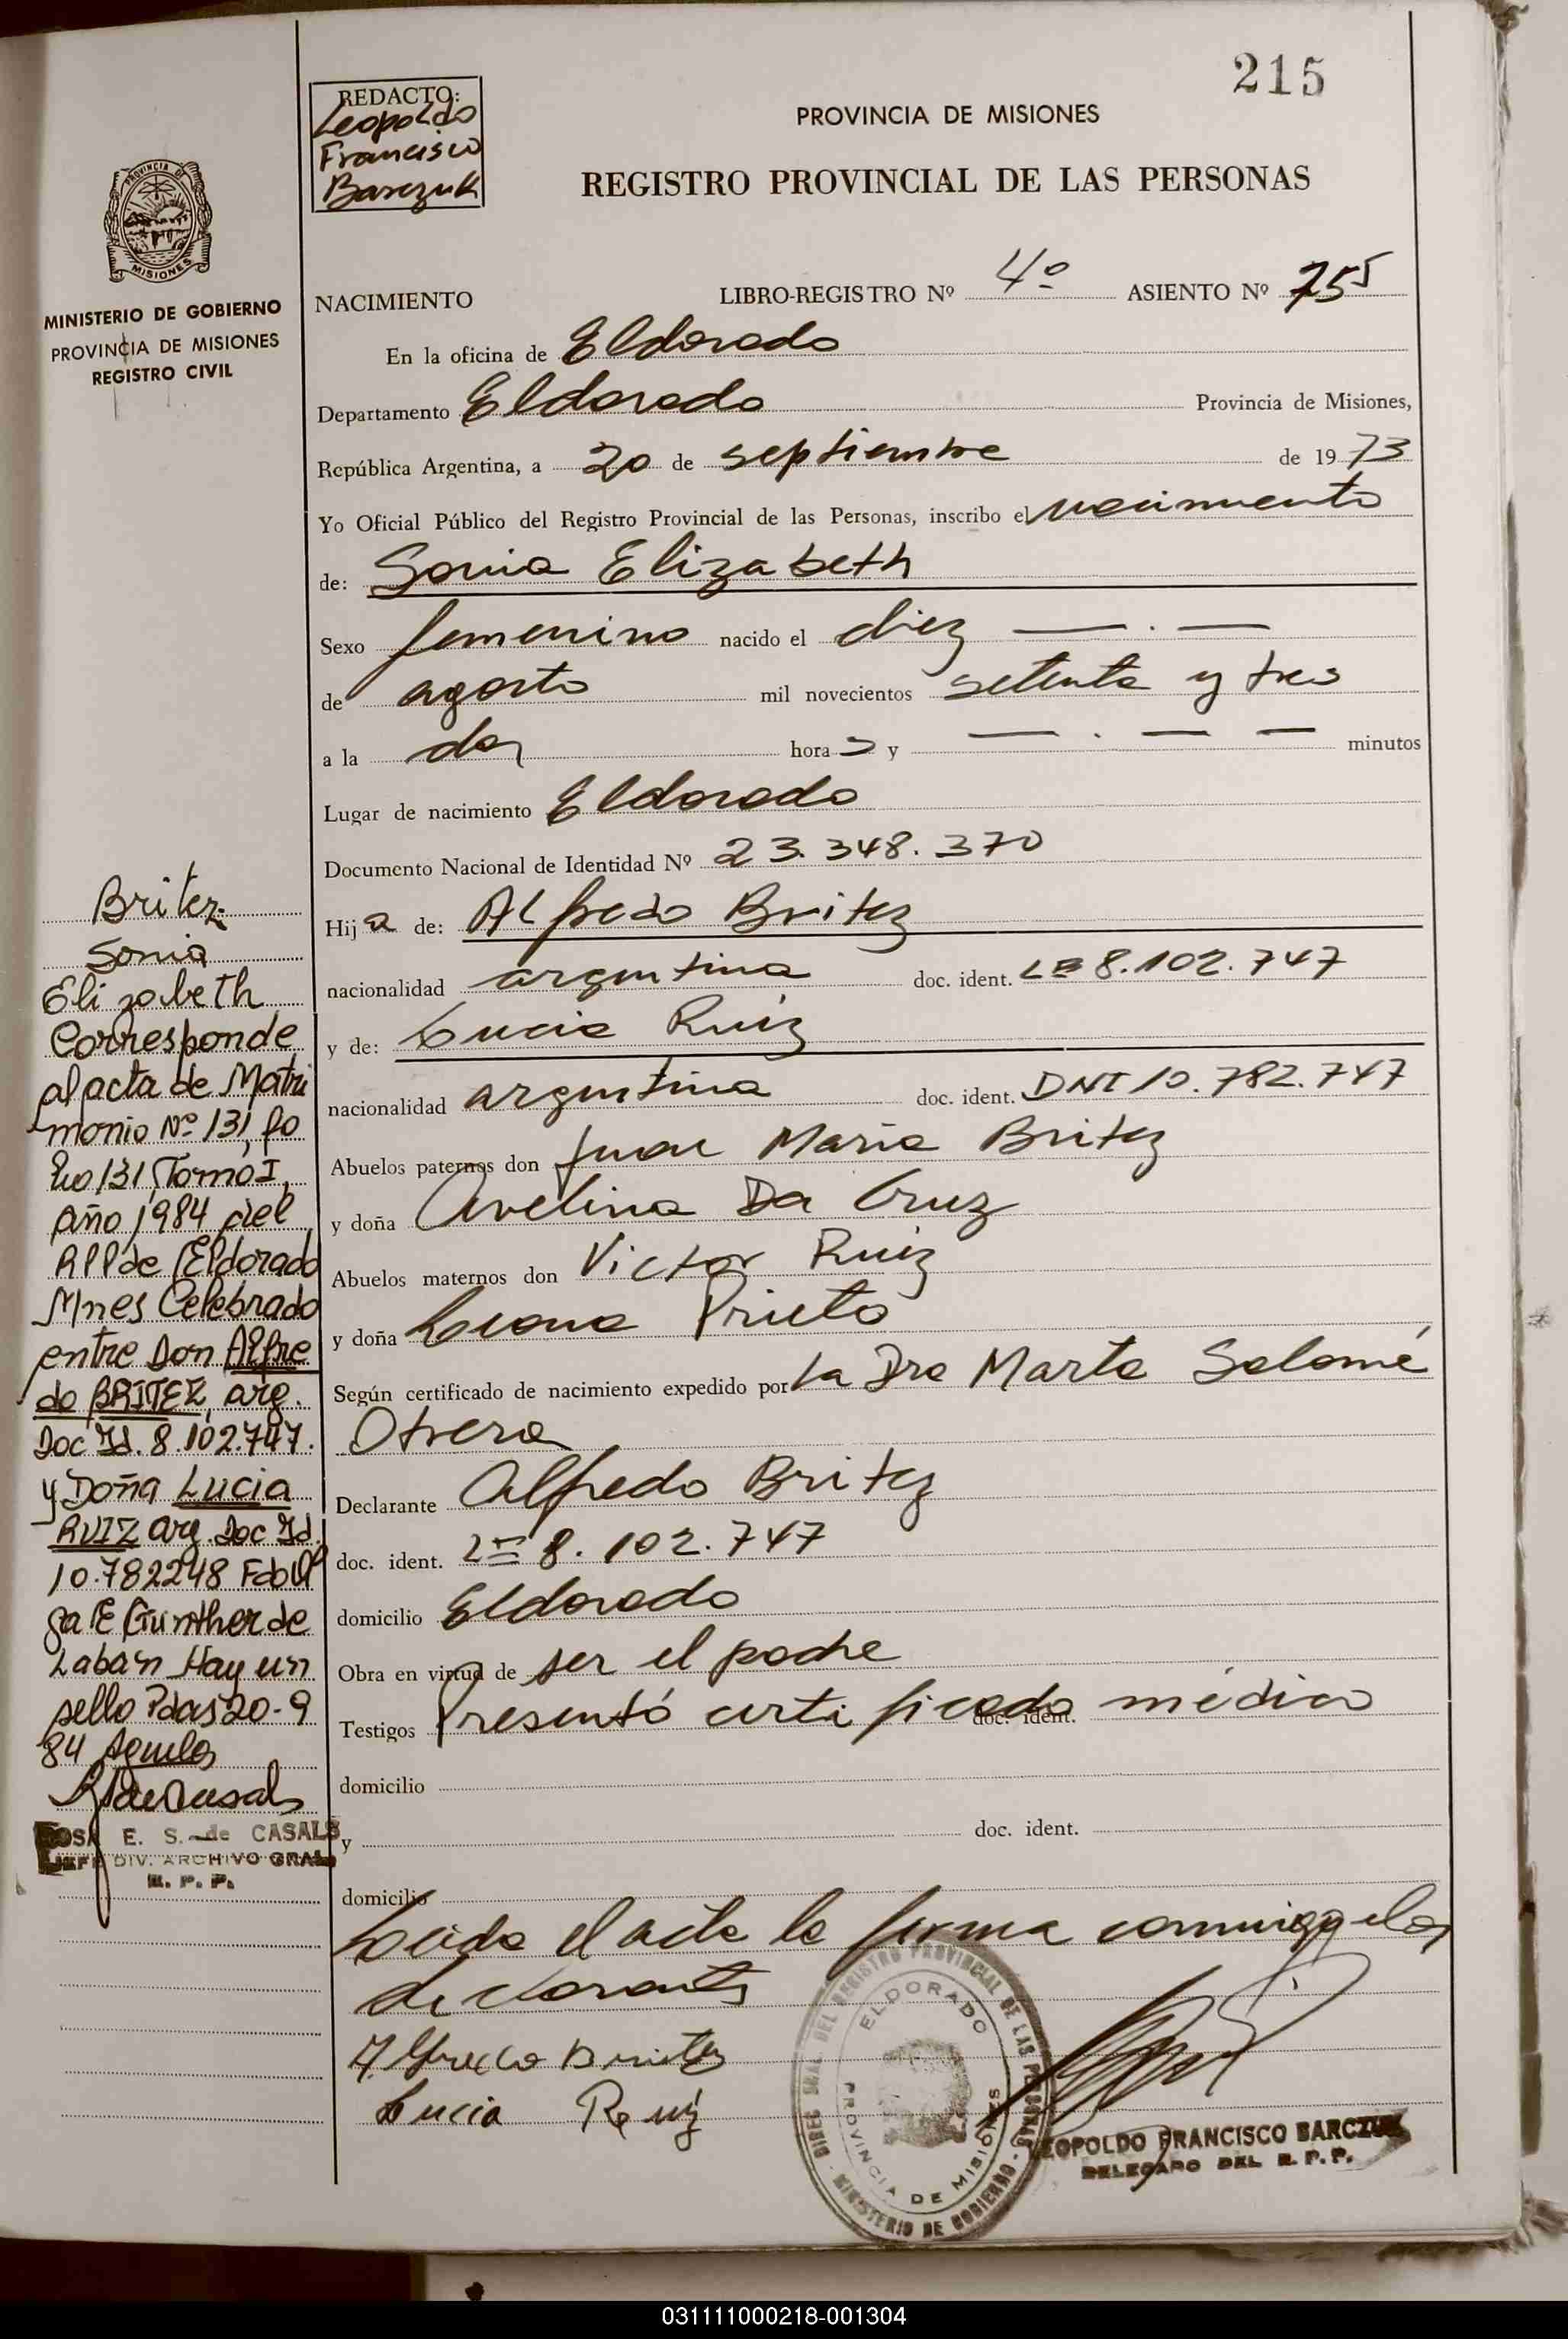 215
REDACTO:
Leopoldo
Francisco
Barczuk
PROVINCIA DE MISIONES
REGISTRO PROVINCIAL DE LAS PERSONAS
PROVINCIA DE
MISIONES
MINISTERIO DE GOBIERNO
PROVINCIA DE MISIONES
REGISTRO CIVIL
NACIMIENTO LIBRO-REGISTRO Nº 4º ASIENTO Nº 755
En la oficina de Eldorado
Departamento Eldorado Provincia de Misiones,
República Argentina, a 20 de septiembre de 1973
Yo Oficial Público del Registro Provincial de las Personas, inscribo el nacimiento
de: Sonia Elizabeth
Sexo femenino nacido el diez — . —
de agosto mil novecientos setenta y tres
a la dos horas y — . — — minutos
Lugar de nacimiento Eldorado
Documento Nacional de Identidad Nº 23.348.370
Hija de: Alfredo Britez
nacionalidad argentina doc. ident. LE 8.102.747
y de: Lucia Ruiz
nacionalidad argentina doc. ident. DNI 10.782.747
Abuelos paternos don Juan Maria Britez
y doña Avelina Da Cruz
Abuelos maternos don Victor Ruiz
y doña Prieto
Según certificado de nacimiento expedido por la Dra Marta Salomé
Otrera
Declarante Alfredo Britez
doc. ident. LE 8.102.747
domicilio Eldorado
Obra en virtud de ser el padre
Testigos Presentó certificado médico doc. ident.
domicilio
y doc. ident.
domicilio
Leida el acta la firma conmigo los
declarantes
Alfredo Britez
Lucia Ruiz
Britez
Sonia
Elizabeth
Corresponde
al acta de Matri
monio Nº 131, fo
lio 131, Tomo I,
año 1984 del
RPP de Eldorado
Mnes Celebrado
entre Don Alfre
do BRITEZ, arg.
Doc Id. 8.102.747.
y Doña Lucia
RUIZ arg. Doc Id.
10.782248 Fdo Ol
ga E Gunther de
Laban Hay un
sello Pdas 20-9
84
ROSA E. S. de CASALS
JEFE DIV. ARCHIVO GRAL.
R. P. P.
DIREC. GRAL. DEL REGISTRO PROVINCIAL DE LAS PERSONAS - MINISTERIO DE GOBIERNO -
ELDORADO
PROVINCIA DE MISIONES
LEOPOLDO FRANCISCO BARCZUK
DELEGADO DEL R. P. P.
031111000218-001304